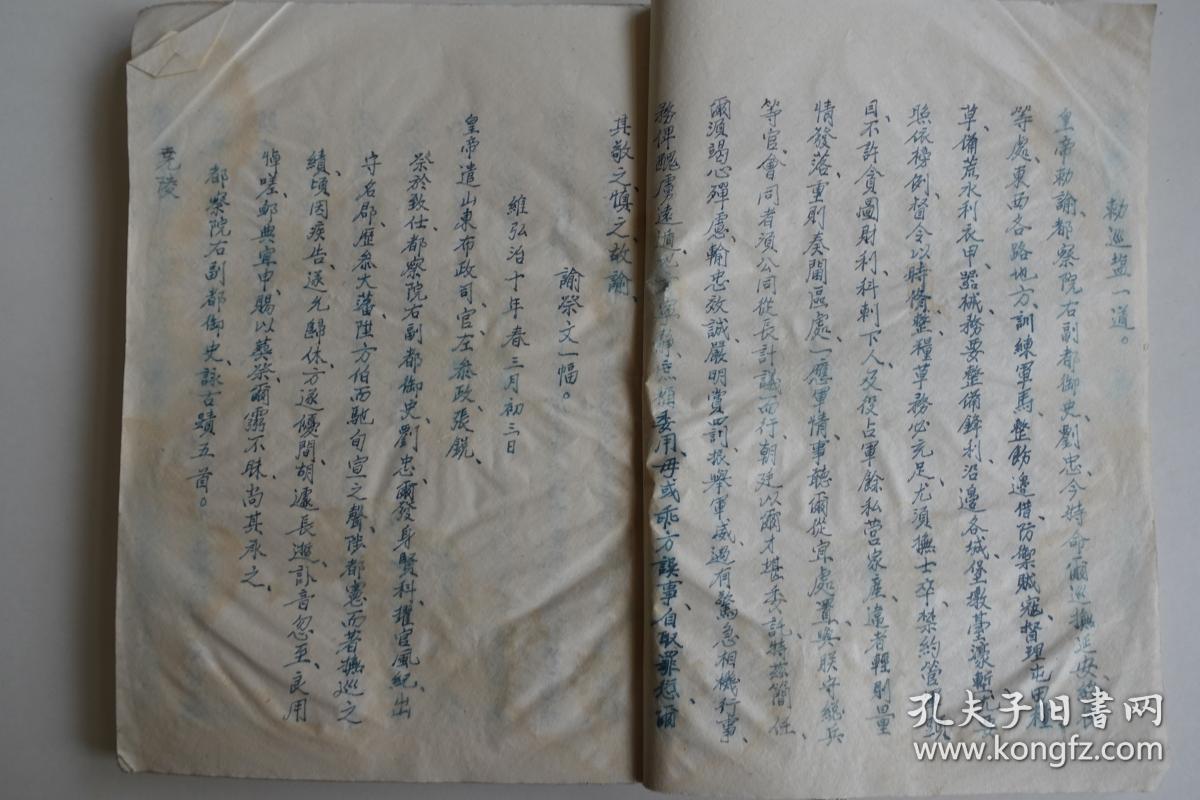 勅巡盐一道。
皇帝勅諭都察院右副都御史劉忠今特命爾巡撫延安
等處東西各路地方、訓練軍馬、整飭邊備防禦賊寇、督理屯田粮
草、備荒水利衣甲器械務要整備鋒利沿邊各城堡墩臺濠塹
照依榜例、督令以時修整、糧草務必充足、尤須撫士卒、禁約管
目、不許貪圖財利、科剌下人、及役占軍餘私営家産、違者輕則量
情發落、重則奏聞區處、一應軍情事聽爾從宜處置與朕守総兵
等官、會同者須公同從長計議而行、朝廷以爾才堪委託、特兹簡任、
爾須竭心殫慮、輸忠效誠、嚴明賞罰、振舉軍威、遇有驚急相機行事、
務俾醜虜遠遁、委用、毋或乖方誤事、自取罪愆、爾
其敬之、慎之、故諭、
諭祭文一幅。
維弘治十年春三月初三日
皇帝遣山東布政司官左叅政、張鋭、
祭於致仕都察院右副都御史劉忠、爾發身賢科、擢官風紀、出
守名郡、歴叅大藩、陞方伯而馳旬宣之聲、陟都憲而著撫巡之
績、頃因疾告、遂允歸休、方遂優閒、胡遽長逝、訃音忽至、良用
悼嗟、卹典宜申、賜以葬祭、爾灵不昧、尚其承之、
都察院右副都御史、詠古蹟五首。
堯陵
孔夫子旧书网
www.kongfz.com